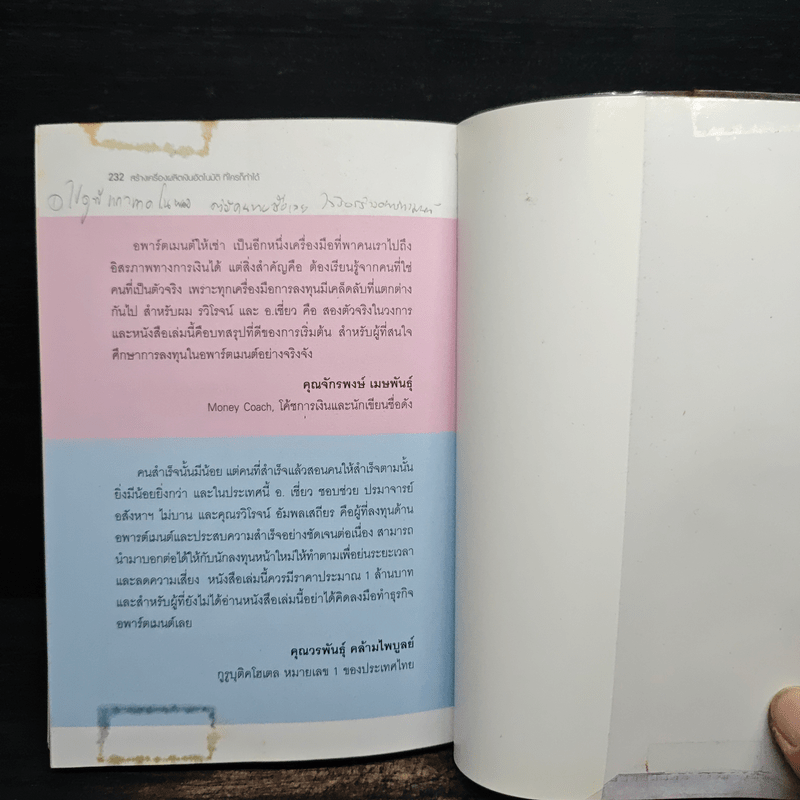 232 สร้างเครื่องผลิตเงินอัตโนมัติ ที่ใครก็ทำได้
อพาร์ตเมนต์ให้เช่า เป็นอีกหนึ่งเครื่องมือที่พาคนเราไปถึง
อิสรภาพทางการเงินได้ แต่สิ่งสำคัญคือ ต้องเรียนรู้จากคนที่ใช่
คนที่เป็นตัวจริง เพราะทุกเครื่องมือการลงทุนมีเคล็ดลับที่แตกต่าง
กันไป สำหรับผม รวิโรจน์ และ อ.เชี่ยว คือ สองตัวจริงในวงการ
และหนังสือเล่มนี้คือบทสรุปที่ดีของการเริ่มต้น สำหรับผู้ที่สนใจ
ศึกษาการลงทุนในอพาร์ตเมนต์อย่างจริงจัง
คุณจักรพงษ์ เมษพันธุ์
Money Coach, โค้ชการเงินและนักเขียนชื่อดัง
คนสำเร็จนั้นมีน้อย แต่คนที่สำเร็จแล้วสอนคนให้สำเร็จตามนั้น
ยิ่งมีน้อยยิ่งกว่า และในประเทศนี้ อ. เชี่ยว ชอบช่วย ปรมาจารย์
อสังหาฯ ไม่บาน และคุณรวิโรจน์ อัมพลเสถียร คือผู้ที่ลงทุนด้าน
อพาร์ตเมนต์และประสบความสำเร็จอย่างชัดเจนต่อเนื่อง สามารถ
นำมาบอกต่อได้ให้กับนักลงทุนหน้าใหม่ให้ทำตามเพื่อย่นระยะเวลา
และลดความเสี่ยง หนังสือเล่มนี้ควรมีราคาประมาณ 1 ล้านบาท
และสำหรับผู้ที่ยังไม่ได้อ่านหนังสือเล่มนี้อย่าได้คิดลงมือทำธุรกิจ
อพาร์ตเมนต์เลย
คุณวรพันธุ์ คล้ามไพบูลย์
กูรูบูติคโฮเตล หมายเลข 1 ของประเทศไทย